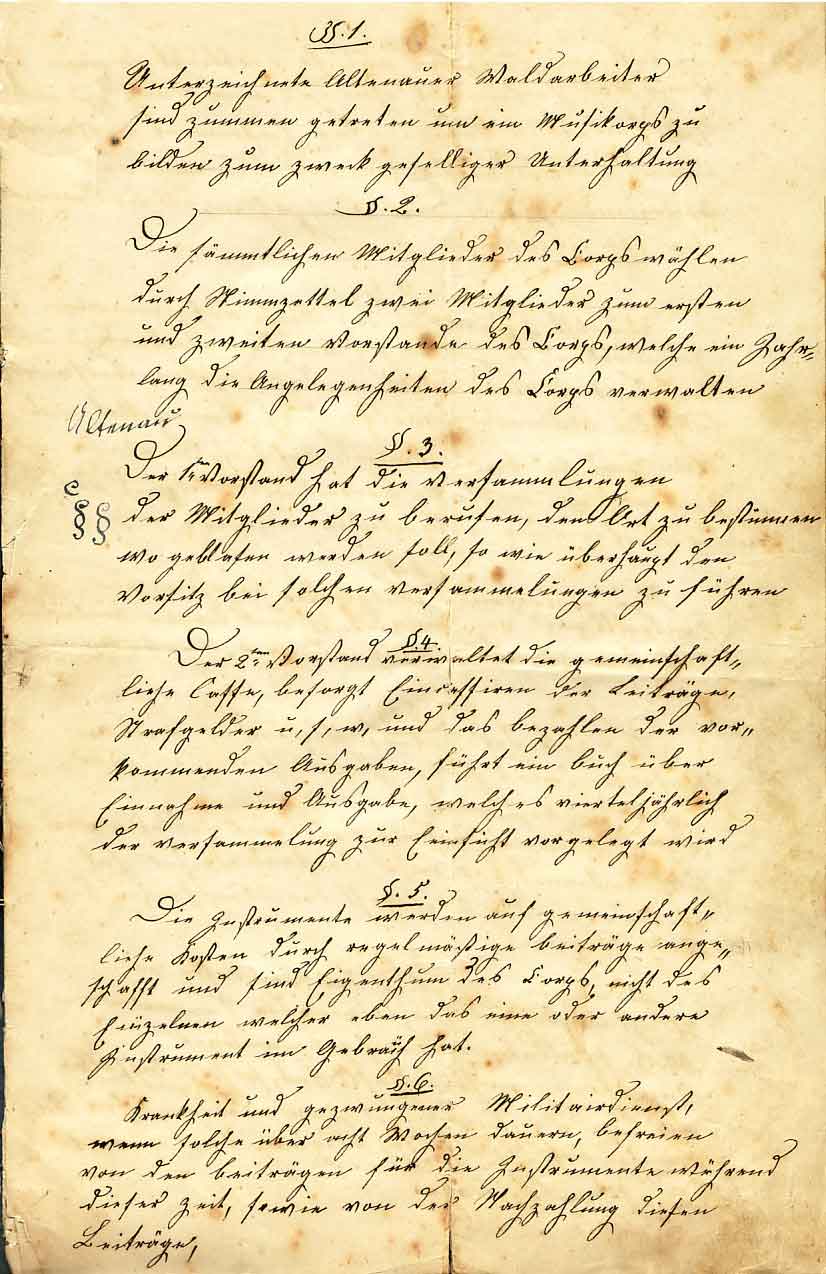 §. 1.
Unterzeichnete Altenauer Waldarbeiter
sind zummen getreten um ein Musikorps zu
bilden zum zweck geselliger Unterhaltung
§. 2.
Die sämmtlichen Mitglieder des Corps wählen
durch Stimmzettel zwei Mitglieder zum ersten
und zweiten Vorstande des Corps, welche ein Jahr„
lang die Angelegenheiten des Corps verwalten
Altenau
§. 3.
Der Vorstand hat die versammlungen
§ § der Mitglieder zu berufen, den Ort zu bestimmen
wo geblasen werden soll, so wie überhaupt den
Vorsitz bei solchen versammelungen zu führen
§. 4.
Der 2ten Vorstand verwaltet die gemeinschaft„
liche Casse, besorgt Eincassiren der Beiträge,
Strafgelder u, s, w, und das bezahlen der vor„
kommenden Ausgaben, führt ein buch über
Einnahme und Ausgabe, welches vierteljährlich
der versammelung zur Eeinsicht vorgelegt wird
§. 5.
Die Instrumente werden auf gemeinschaft„
liche Kosten durch regelmäßige beiträge ange„
schafft und sind Eigenthum des Corps, nicht des
Einzelnen welcher eben das eine oder andere
Instrument im Gebrauch hat.
§. 6.
Krankheit und gezwungener Militairdienst,
wenn solche über acht Wochen dauern, befreien
von den beiträgen für die Instrumente während
dieser Zeit, sowie von der Nachzahlung diesen
Beiträge,